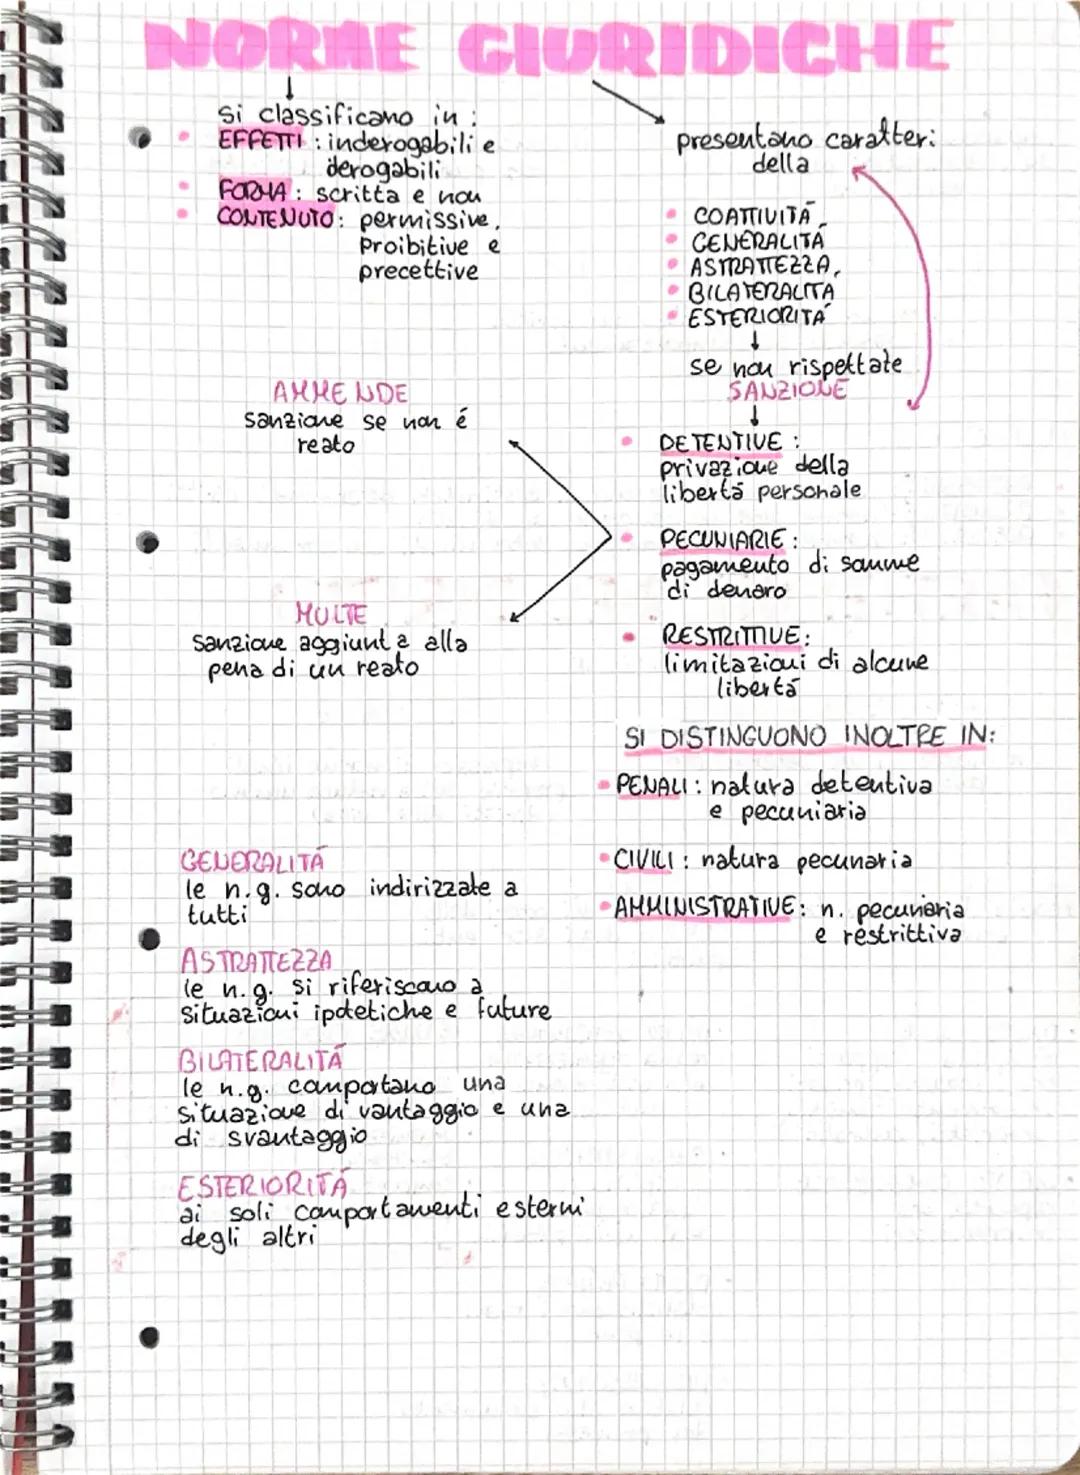 NORME GIURIDICHE
Si classificano in :
• EFFETTI : inderogabili e
derogabili
• FORMA : scritta e non
• CONTENUTO : permissive,
Proibitive e
precettive
presentano caratteri
della
• COATTIVITÁ,
• GENERALITÁ
• ASTRATTEZZA,
• BILATERALITA
• ESTERIORITÁ
se non rispettate
SANZIONE
• DETENTIVE :
privazione della
libertá personale
• PECUNIARIE :
pagamento di somme
di denaro
• RESTRITTIVE :
limitazioni di alcune
libertá
AMMENDE
Sanzione se non é
reato
MULTE
Sanzione aggiunta alla
pena di un reato
SI DISTINGUONO INOLTRE IN:
• PENALI : natura detentiva
e pecuniaria
• CIVILI : natura pecunaria
• AMMINISTRATIVE : n. pecuniaria
e restrittiva
GENERALITÁ
le n.g. sono indirizzate a
tutti
ASTRATTEZZA
le n.g. si riferiscono a
situazioni ipotetiche e future
BILATERALITÁ
le n.g. comportano una
situazione di vantaggio e una
di svantaggio
ESTERIORITÁ
ai soli comportamenti esterni
degli altri